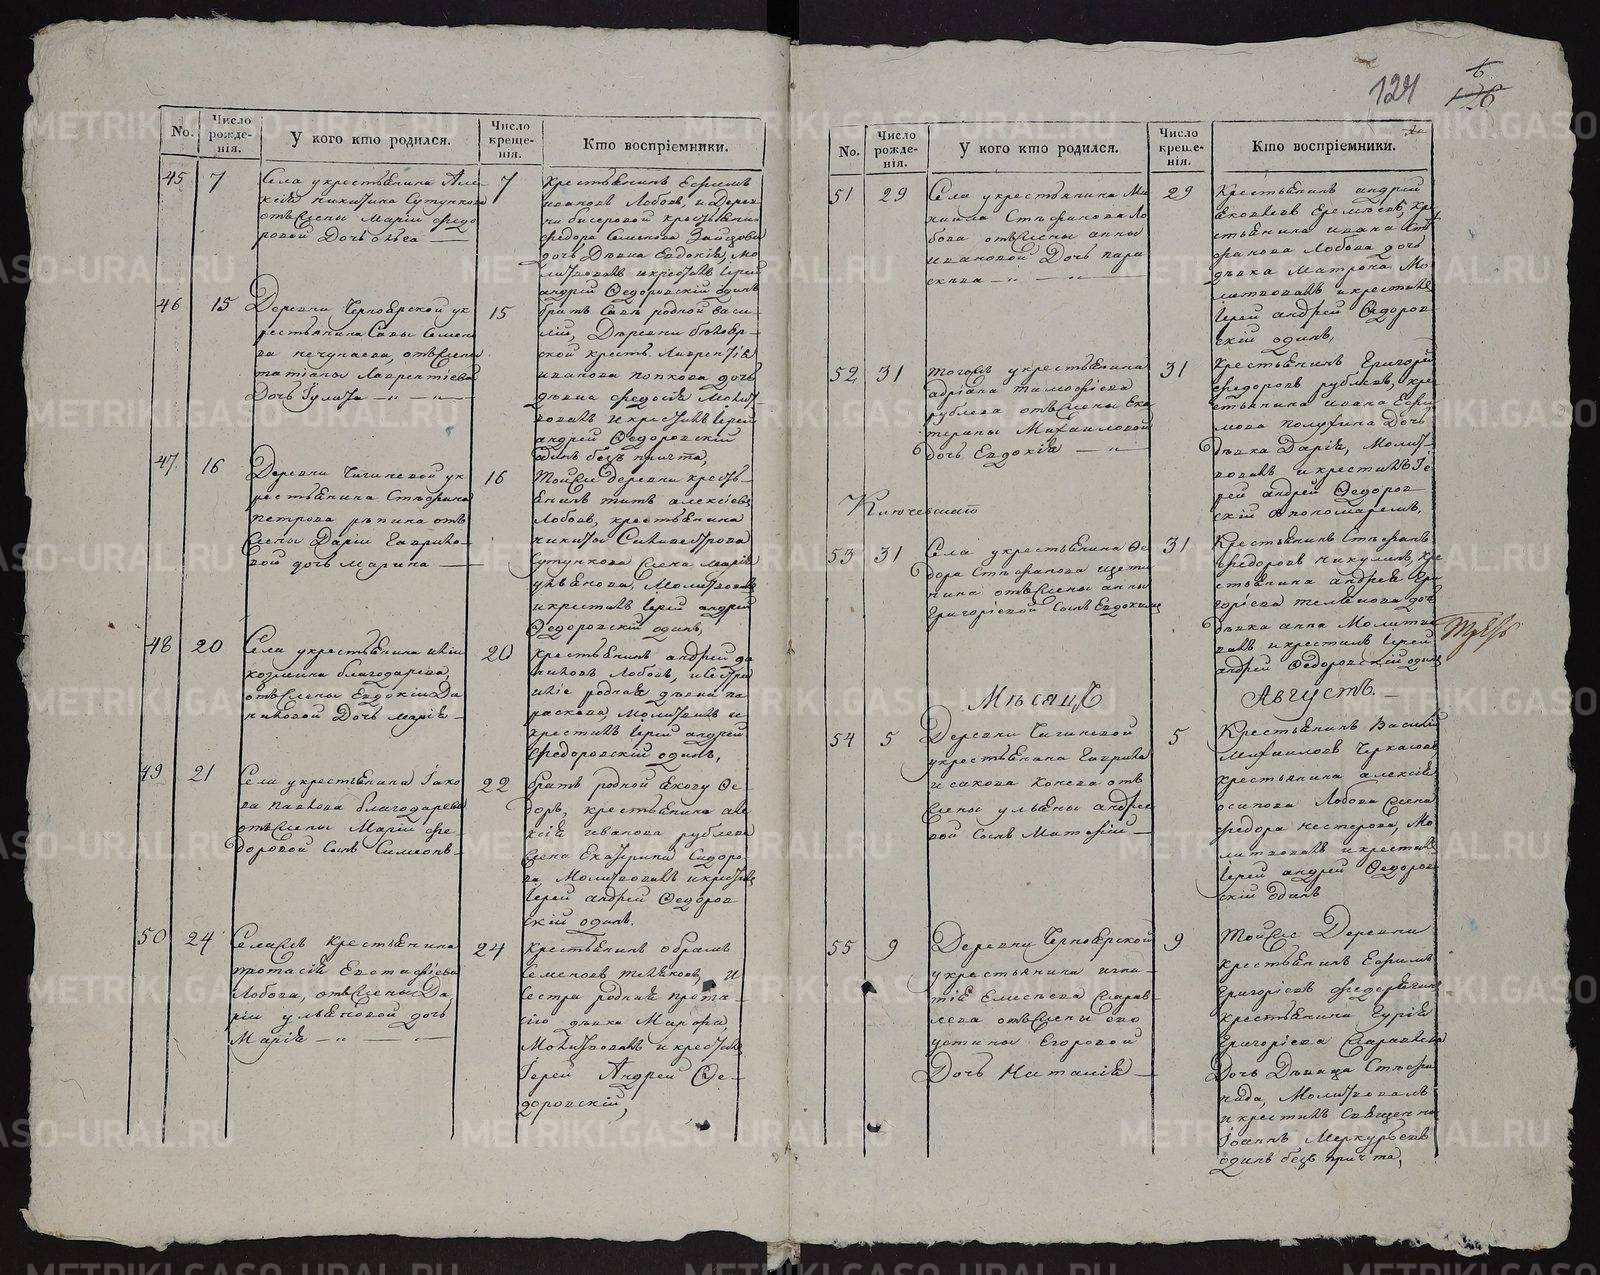 No.
Число рожде-нія.
У кого кто родился.
Число креще-нія.
Кто воспріемники.
45
7
Села у крестьянина Але
ксія никитина Сутункова
отъ жены Маріи федо
ровой Дочь ольга
7
Крестьянинъ Ефимъ
ивановъ Лобовъ, и Дерев
ни бисеровой крестьянина
федора Семенова Зайцова
дочь Дѣвка Евдокія, мо
литвовалъ и крестилъ Іерей
андрей Ѳедоровскій одинъ
46
15
Деревни Черноярской у к
рестьянина Савы Семено
ва нечунаева, отъ жены
татіаны Лаврентіевой
Дочь Іулита
15
братъ Савы родной Васи
лій, Деревни бѣлояр-
ской крестъ. Лаврентія
иванова попкова дочь
дѣвка федосія Молит
вовалъ и крестилъ Іерей
андрей Ѳедоровскій
одинъ безъ причта,
47
16
Деревни Чигиневой у к
рестьянина Стефана
петрова рѣпина отъ
жены Даріи Гаврило-
вой дочь Марина
16
Той же деревни кресть-
янинъ титъ алексіевъ
Лобовъ, крестьянина
никиты Силивестрова
Сутункова жена Марія
ульянова, Молитвовалъ
и крестилъ Іерей андрей
Ѳедоровскій одинъ,
48
20
Села у крестьянина иліи
козмина благодарева,
отъ жены Евдокіи Да
ниловой Дочь марія
20
крестьянинъ андрей да
ниловъ Лобовъ, и сестра
иліе родная дѣвка па
раскова, молитвовалъ и
крестилъ Іерей андрей
Ѳедоровскій одинъ,
49
21
Села у крестьянина Іако
ва павлова благодарева
отъ жены Маріи фе
доровой Сынъ Симеонъ
22
братъ родной Якову Ѳе-
доръ, крестьянина але
ксія иванова рублева
жена Екатерина Сидоро
ва Молитвовалъ и крестилъ
Іерей андрей Ѳедоров
скій одинъ.
50
24
Села же крестьянина
протасія Евстафіева
Лобова, отъ жены Да
ріи ульяновой дочь
Марія
24
крестьянинъ обрамъ
Семеновъ телѣновъ, и
Сестра родная прота
сію дѣвка Марфа,
Молитвовалъ и крестилъ
Іерей Андрей Ѳе-
доровскій,
124
6
No.
Число рожде-нія.
У кого кто родился.
Число креще-нія.
Кто воспріемники.
51
29
Села у крестьянина Ми
хаила Стефанова Ло
бова отъ жены анны
ивановой Дочь пара
скева
29
Крестьянинъ андрей
Яковлевъ Еремѣевъ, кре
стьянина ивана Сте
фанова Лобова дочь
дѣвка Матрона Мо
литвовалъ и крестилъ
Іерей андрей Ѳедоров
скій одинъ,
52
31
тогожъ у крестьянина
адріана тимофіева
рублева отъ жены Ека
терины Михаиловой
дочь Евдокія
31
Крестьянинъ Григорій
федоровъ рублевъ, кре
стьянина ивана Ефи
мова полухина Дочь
дѣвка Дарія, Молит
вовалъ и крестилъ Іе
рей андрей Ѳедоров
скій с пономаремъ.
Ключевской
53
31
Села у крестьянина Ѳе
дора Стефанова щети
нина отъ жены анны
Григоріевой Сынъ Евдокимъ
31
Крестьянинъ Стефанъ
федоровъ никулинъ, кре
стьянина андрея Гри
горіева телѣнова дочь
дѣвка анна Молитво
валъ и крестилъ Іерей
андрей Ѳедоровскій одинъ
Мѣсяцъ
Августъ.
54
5
Деревни Чигиневой
у крестьянина Гаврила
исакова Конева отъ
жены ульяны андрее
вой Сынъ Матфій
5
Крестьянинъ Василій
Михаиловъ Черкасовъ
крестьянина алексія
осипова Лобова жена
федора нестерова, Мо
литвовалъ и крестилъ
Іерей андрей Ѳедоров
скій одинъ
55
9
Деревни Черноярской
у крестьянина игна-
тія Елисѣева Журав-
лева отъ жены евдо
устины Егоровой
Дочь Наталія
9
Той же Деревни
крестьянинъ Ефимъ
Григоріевъ
крестьянина Гурія
Григоріева Журавлева
Дочь Дѣвица Стефа
нида, Молитвовалъ
и крестилъ Священни
Іоаннъ Меркурьевъ
одинъ безъ причта,
METRIKI.GASO-URAL.RU